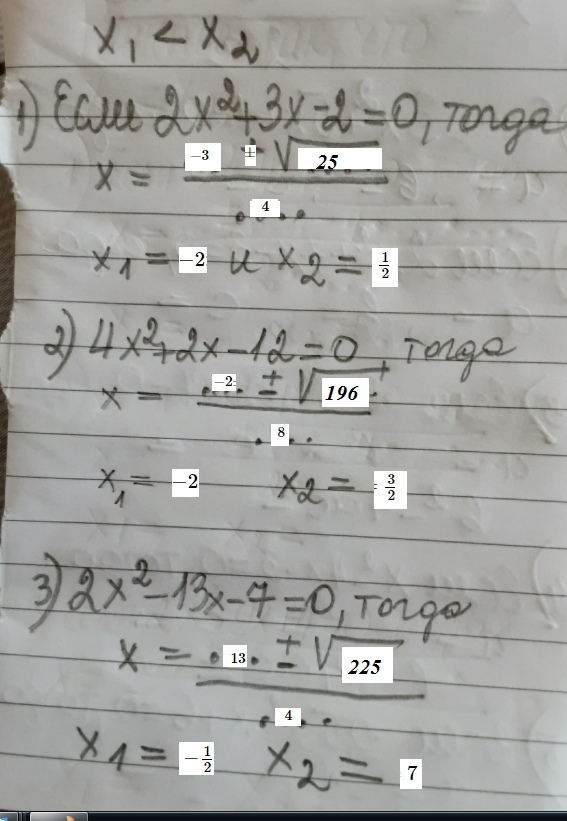 x₁ < x₂
1) Если 2x²+3x-2=0, тогда
x = −3 ± √25
4
x₁ = −2 и x₂ = 1/2
2) 4x²+2x-12=0, тогда
x = −2 ± √196
8
x₁ = −2 x₂ = 3/2
3) 2x²-13x-7=0, тогда
x = 13 ± √225
4
x₁ = −1/2 x₂ = 7